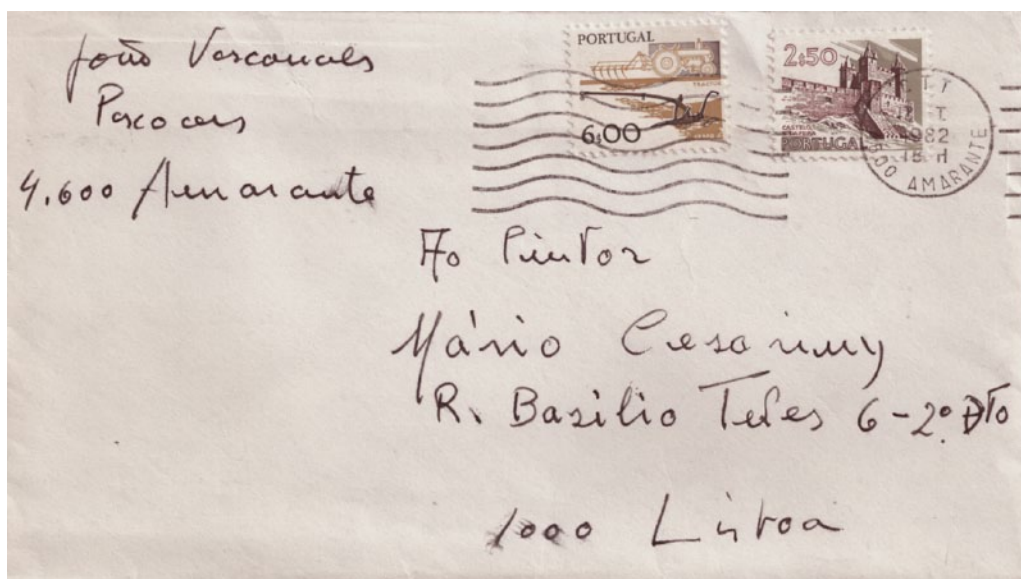 João Vasconcelos
Pascoaes
4.600 Amarante
PORTUGAL
TRACTOR
6$00
2$50
CASTELO
DA FEIRA
PORTUGAL
1982
18 H
AMARANTE
Ao Pintor
Mário Cesariny
R. Basilio Teles 6-2º Dto
1000 Lisboa